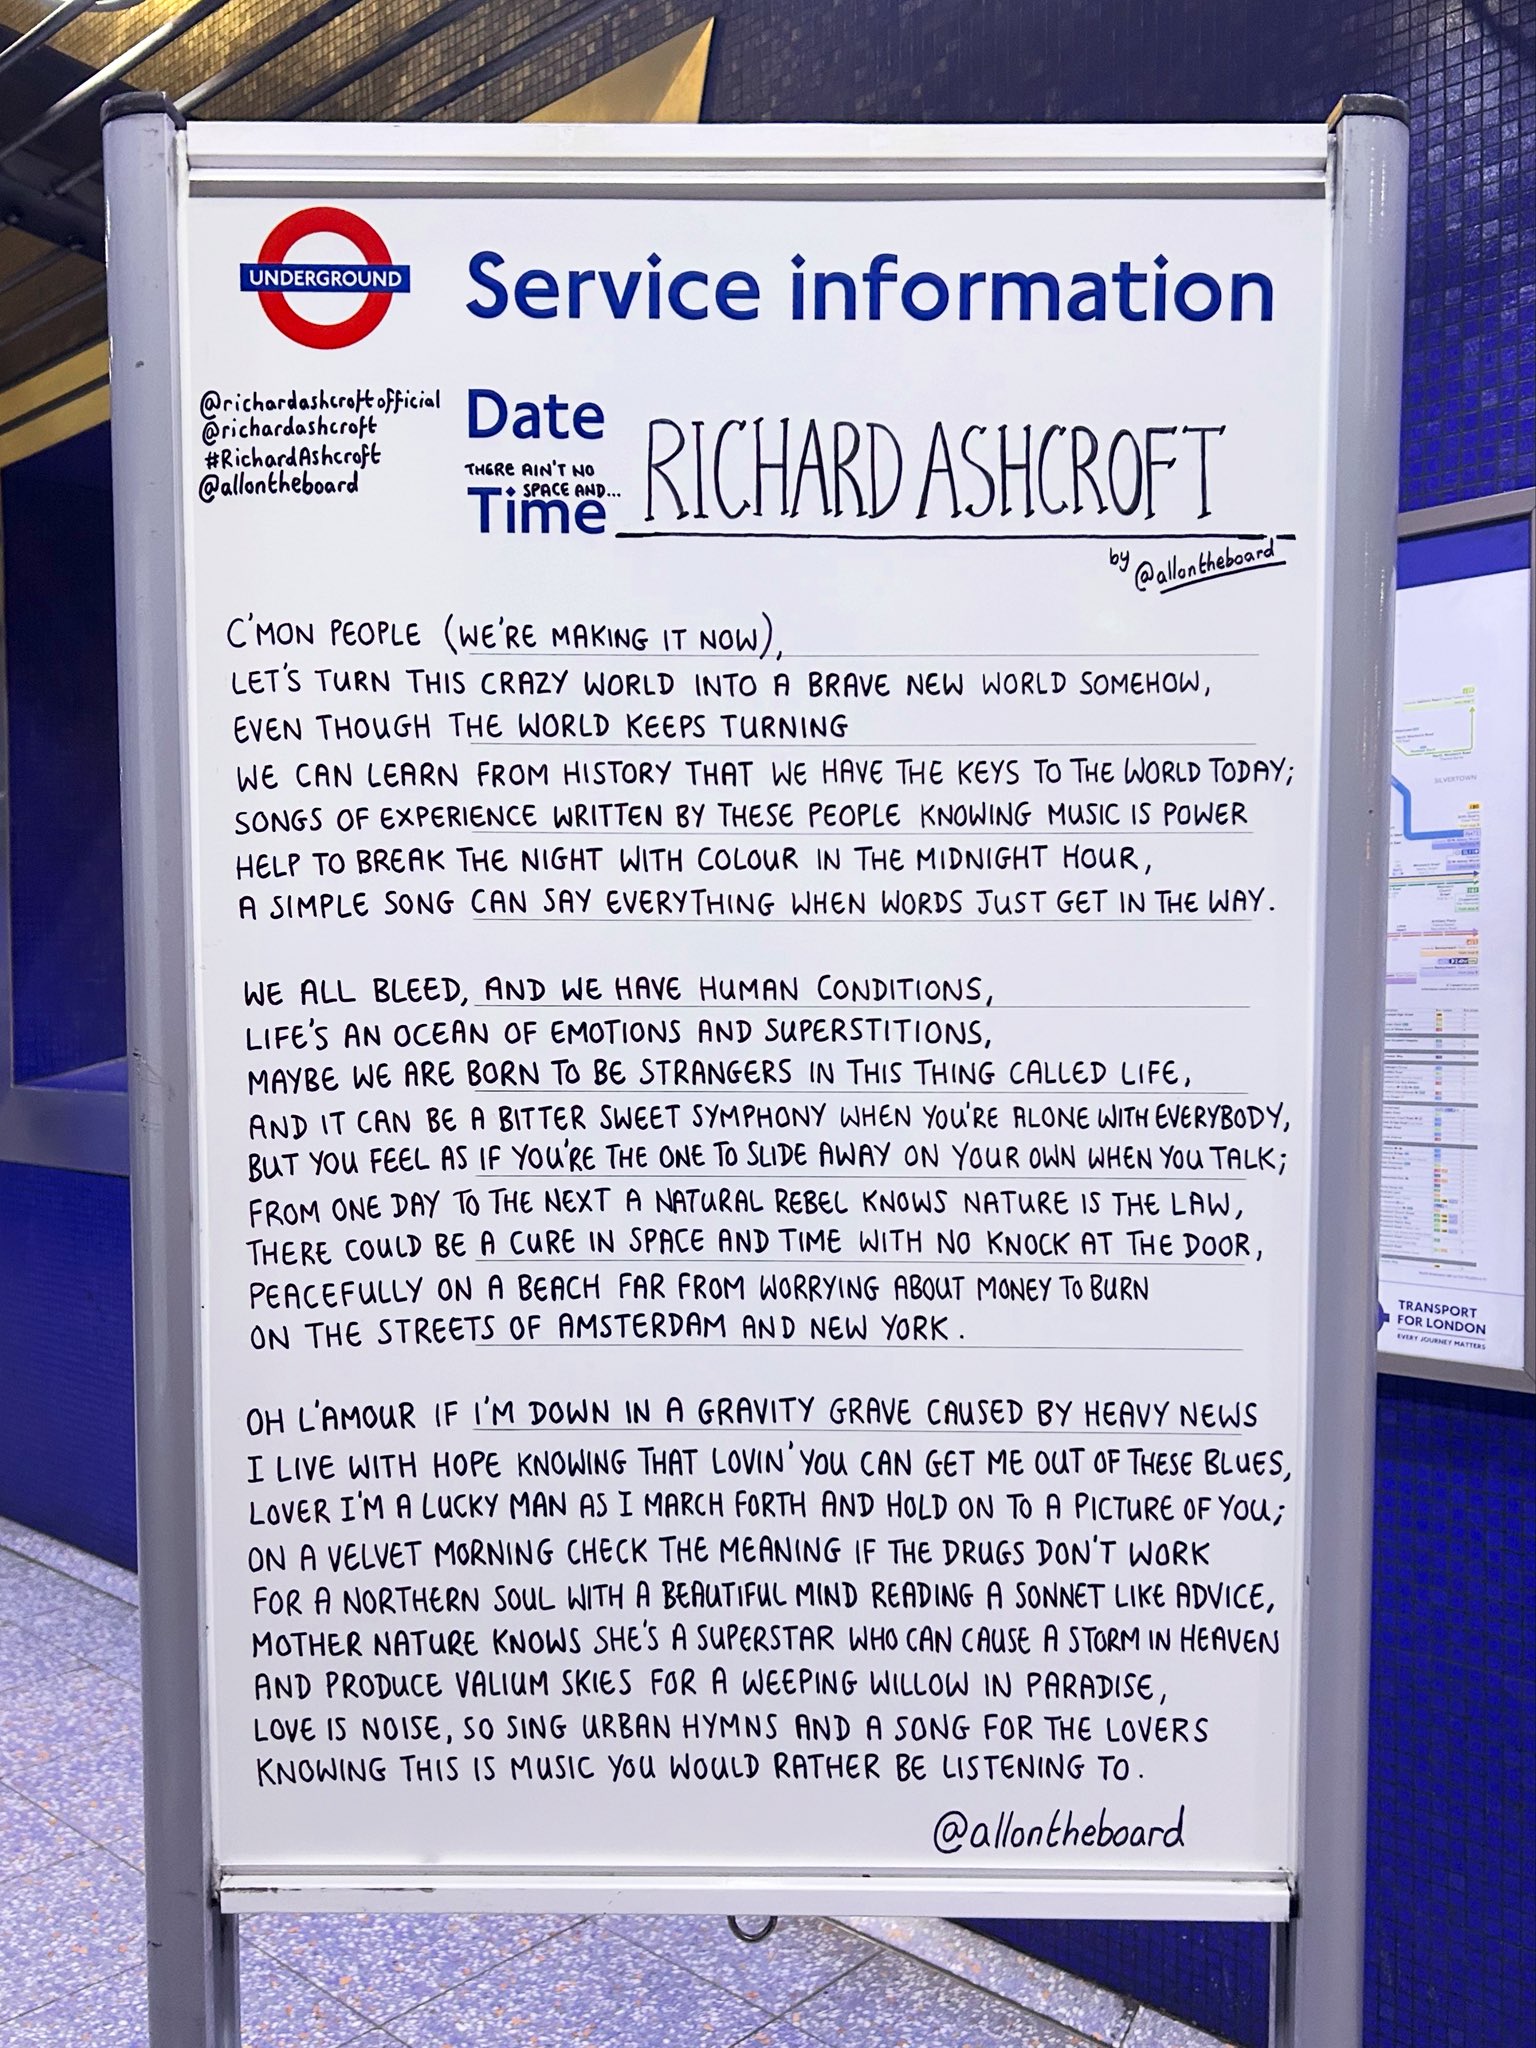 UNDERGROUND
Service information
@richardashcroftofficial
@richardashcroft
#RichardAshcroft
@allontheboard
Date
THERE AIN'T NO
SPACE AND...
Time
RICHARD ASHCROFT
by @allontheboard
C'MON PEOPLE (WE'RE MAKING IT NOW),
LET'S TURN THIS CRAZY WORLD INTO A BRAVE NEW WORLD SOMEHOW,
EVEN THOUGH THE WORLD KEEPS TURNING
WE CAN LEARN FROM HISTORY THAT WE HAVE THE KEYS TO THE WORLD TODAY;
SONGS OF EXPERIENCE WRITTEN BY THESE PEOPLE KNOWING MUSIC IS POWER
HELP TO BREAK THE NIGHT WITH COLOUR IN THE MIDNIGHT HOUR,
A SIMPLE SONG CAN SAY EVERYTHING WHEN WORDS JUST GET IN THE WAY.
WE ALL BLEED, AND WE HAVE HUMAN CONDITIONS,
LIFE'S AN OCEAN OF EMOTIONS AND SUPERSTITIONS,
MAYBE WE ARE BORN TO BE STRANGERS IN THIS THING CALLED LIFE,
AND IT CAN BE A BITTER SWEET SYMPHONY WHEN YOU'RE ALONE WITH EVERYBODY,
BUT YOU FEEL AS IF YOU'RE THE ONE TO SLIDE AWAY ON YOUR OWN WHEN YOU TALK;
FROM ONE DAY TO THE NEXT A NATURAL REBEL KNOWS NATURE IS THE LAW,
THERE COULD BE A CURE IN SPACE AND TIME WITH NO KNOCK AT THE DOOR,
PEACEFULLY ON A BEACH FAR FROM WORRYING ABOUT MONEY TO BURN
ON THE STREETS OF AMSTERDAM AND NEW YORK.
OH L'AMOUR IF I'M DOWN IN A GRAVITY GRAVE CAUSED BY HEAVY NEWS
I LIVE WITH HOPE KNOWING THAT LOVIN' YOU CAN GET ME OUT OF THESE BLUES,
LOVER I'M A LUCKY MAN AS I MARCH FORTH AND HOLD ON TO A PICTURE OF YOU;
ON A VELVET MORNING CHECK THE MEANING IF THE DRUGS DON'T WORK
FOR A NORTHERN SOUL WITH A BEAUTIFUL MIND READING A SONNET LIKE ADVICE,
MOTHER NATURE KNOWS SHE'S A SUPERSTAR WHO CAN CAUSE A STORM IN HEAVEN
AND PRODUCE VALIUM SKIES FOR A WEEPING WILLOW IN PARADISE,
LOVE IS NOISE, SO SING URBAN HYMNS AND A SONG FOR THE LOVERS
KNOWING THIS IS MUSIC YOU WOULD RATHER BE LISTENING TO.
@allontheboard
SILVERTOWN
TRANSPORT
FOR LONDON
EVERY JOURNEY MATTERS